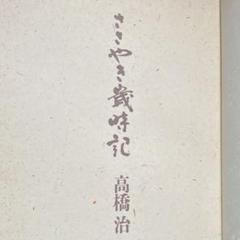 ささやき歳時記
高橋治